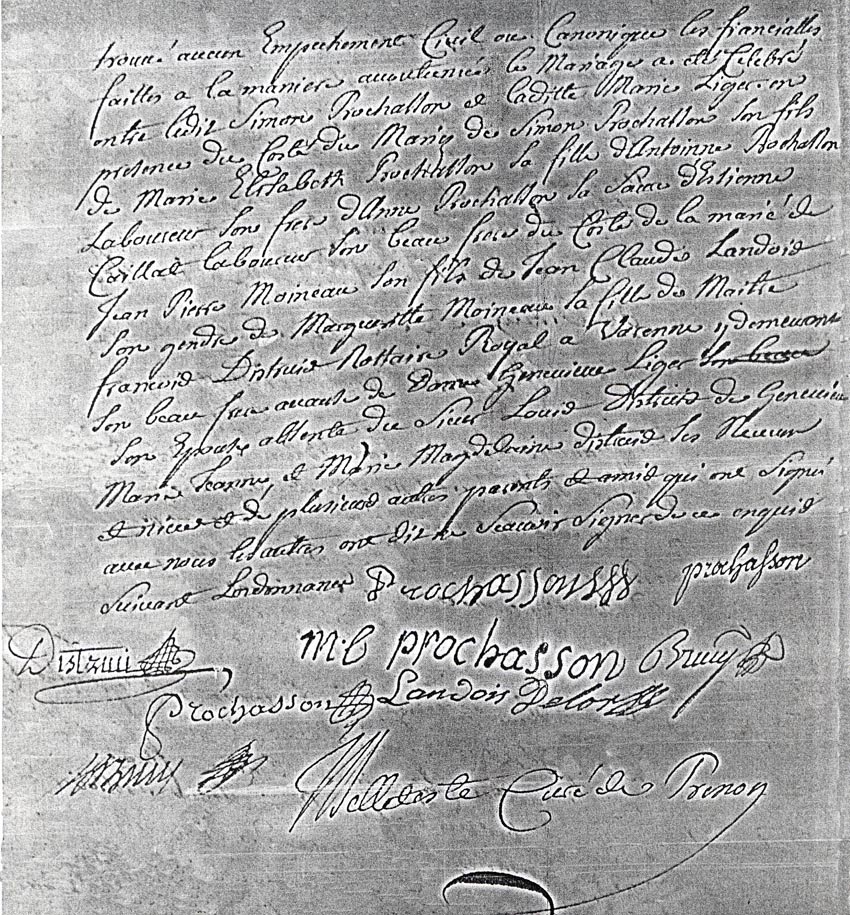 trouvé aucun Empechement Civil ou Canonique les fiancialles
faittes a la maniere accoutumés le Mariage a eté Celebré
entre ledit Simon Prochasson et laditte Marie Liger en
presence du Costé du Marié de Simon Prochasson son fils
de Marie Elisabeth Prochasson sa fille d'Antoinne Prochasson
Laboureur son frere d'Anne Prochasson sa Soeur d'Estienne
Caillat laboureur son beau frere du Costé de la marié de
Jean Pierre Moineau son fils de Jean Claude Landois
son gendre de Margueritte Moineau sa fille de Maitre
francois Distrui Nottaire Royal a Varenne y demeurant
son beau frere de Dame Genevieve Liger
son Epouse du Sieur Louis de Genevieve
Marie Jeanne et Marie Magdelaine ses Neveux
et nieces et de plusieurs autres parents et amis qui ont Signé
avec nous les autres ont dit ne Scavoir Signer de ce enquis
Suivant Lordonnance Prochasson prochasson
Distrui M.E prochasson
Prochasson Landois
Curé de